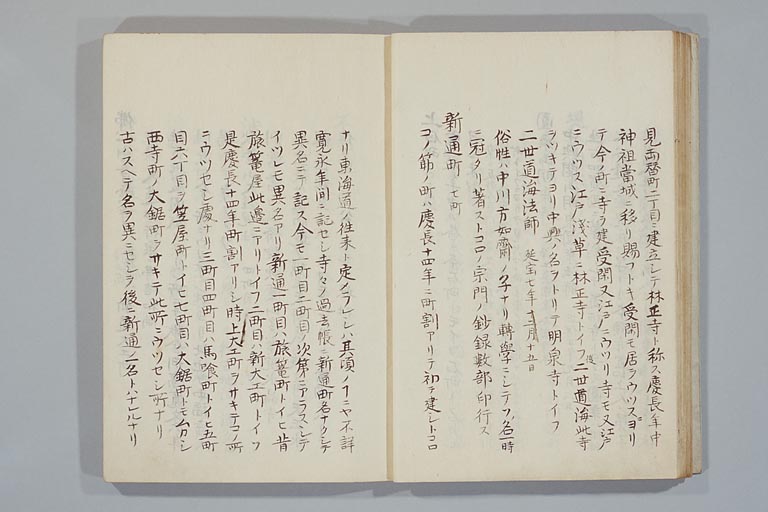 見両替町二丁目ニ建立シテ林正寺ト称ス慶長年中
神祖當城ニ移リ賜フトキ受閑モ居ヲウツスヨリ
テ今ノ所ニ寺ヲ建受閑又江戸ニウツリ寺モ又江戸
ニウツス江戸浅草ニ林正寺トイフ後二世道海此寺
ヲツキテヨリ中興ノ名ヲトリテ明泉寺トイフ
二世道海法師 延宝七年十二月十五日
俗性ハ中川方如齋ノ子ナリ轉學ニシテソノ名一時
ニ冠タリ著ストコロノ宗門ノ鈔録數部印行ス
新通町 七町
コノ筋ノ町ハ慶長十四年ニ町割アリテ初テ建シトコロ
ナリ東海道ノ往来ト定メラレシハ其頃ノ丁ニヤ不詳
寛永年間ニ記セシ寺々ノ過去帳ニ新通町名ナクシテ
異名ニテ記ス今モ一町目二町目ノ次第ニアラスシテ
イツレモ異名アリ新通一町目ハ旅篭町トイヒ昔
旅篭屋此邊ニアリトイフ二町目ハ新大工町トイフ
是慶長十四年町割アリシ時上大工町ヲサキテコノ所
ニウツセシ處ナリ三町目四町目ハ馬喰町トイヒ五町
目六丁目ヲ笠屋町トイヒ七町目ハ大鋸町トモムカシ
西寺町ノ大鋸町ヲサキテ此所ニウツセシ所ナリ
古ハスヘテ名ヲ異ニセシヲ後ニ新通ノ一名トハナレルナリ